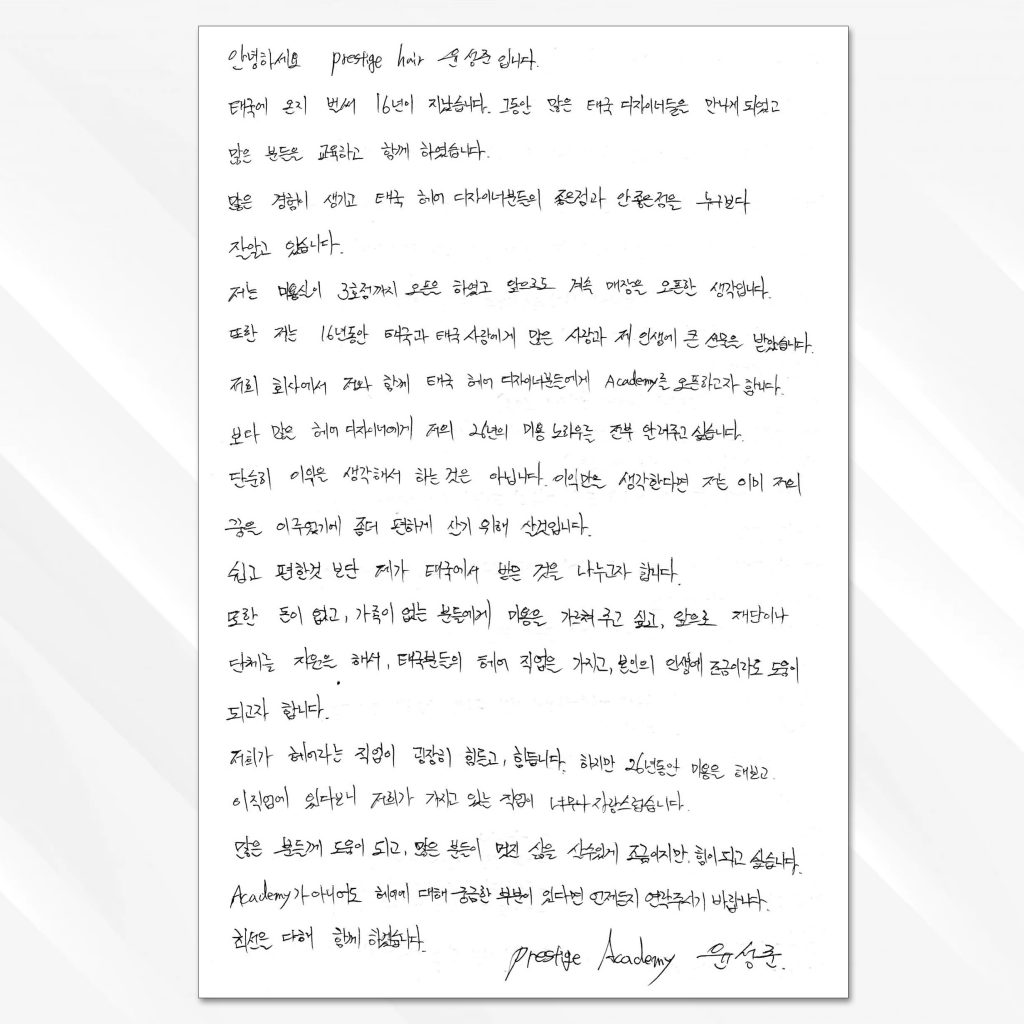 안녕하세요 prestige hair 윤성준입니다.
태국에 온지 벌써 16년이 지났습니다. 그동안 많은 태국 디자이너들을 만나게 되었고
많은 분들을 교육하고 함께 하였습니다.
많은 경험이 생기고 태국 헤어 디자이너분들의 좋은점과 안좋은점을 누구보다
잘알고 있습니다.
저는 미용실이 3호점까지 오픈을 하였고 앞으로도 계속 매장을 오픈할 생각입니다.
또한 저는 16년동안 태국과 태국 사람에게 많은 사랑과 제 인생에 큰 선물을 받았습니다.
저희 회사에서 저와 함께 태국 헤어 디자이너분들에게 Academy를 오픈하고자 합니다.
보다 많은 헤어 디자이너에게 저의 26년의 미용 노하우를 전부 알려주고 싶습니다.
단순히 이익을 생각해서 하는 것은 아닙니다. 이익만을 생각한다면 저는 이미 저의
꿈을 이루었기에 좀더 편하게 살기 위해 살것입니다.
쉽고 편한것 보단 제가 태국에서 받은 것을 나누고자 합니다.
또한 돈이 없고, 가족이 없는 분들에게 미용을 가르쳐 주고 싶고, 앞으로 재단이나
단체를 지원을 해서, 태국분들의 헤어 직업을 가지고, 본인의 인생에 조금이라도 도움이
되고자 합니다.
저희가 헤어라는 직업이 굉장히 힘들고, 힘듭니다. 하지만 26년동안 미용을 해보고
이직업에 있다보니 저희가 가지고 있는 직업이 너무나 자랑스럽습니다.
많은 분들께 도움이 되고, 많은 분들이 멋진 삶을 살수있게 조금이지만, 힘이되고 싶습니다.
Academy가 아니어도 헤어에 대해 궁금한 부분이 있다면 언제든지 연락주시기 바랍니다.
최선을 다해 함께 하겠습니다.
prestige Academy 윤성준.